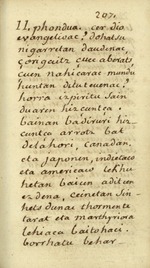 207.
II. phondua. cer dio
evangelioac, dohatsu
nigarretan daudenac,
çongaitz cuec aborats,
cuen nahicarac mundu
huntan ditutcuenac,
horra izpiritu Sain
duaren hizcuntça
bainan badirurri hiz
cuntça arrotz bat
dela hori, Canadan,
eta Japonen, indietaco
eta americaco lekhu
hetan baicen aditcen
ez dena, ceinetan Sin
hets dunac thormente
tarat eta marthyriora
lehiaca baitohaci.
borthatu behar